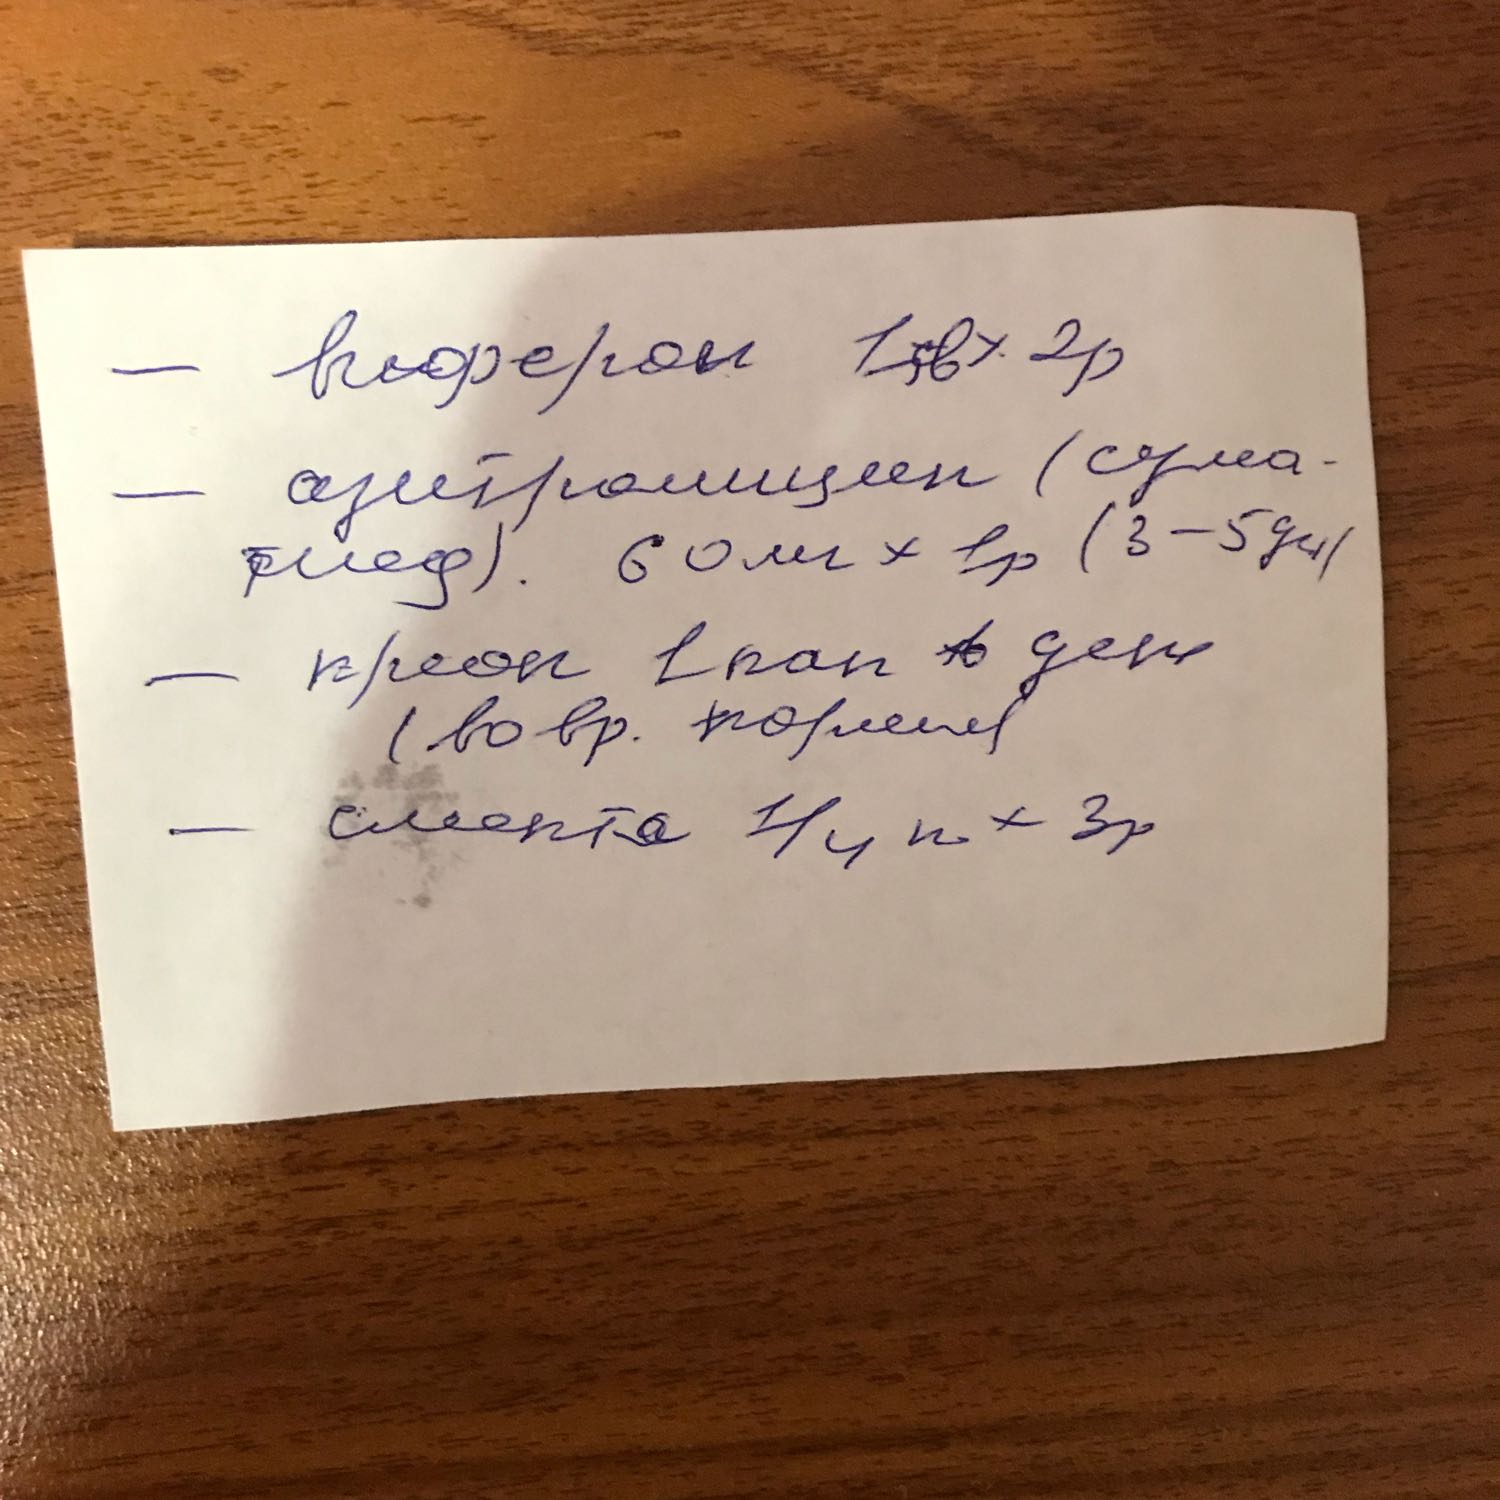 — виферон 1 св х 2р
— азитромицин (сума-
мед). 60 мг х 1р (3-5дн)
— креон 1 кап в день
(во вр. кормл)
— смекта 1/4 п х 3р